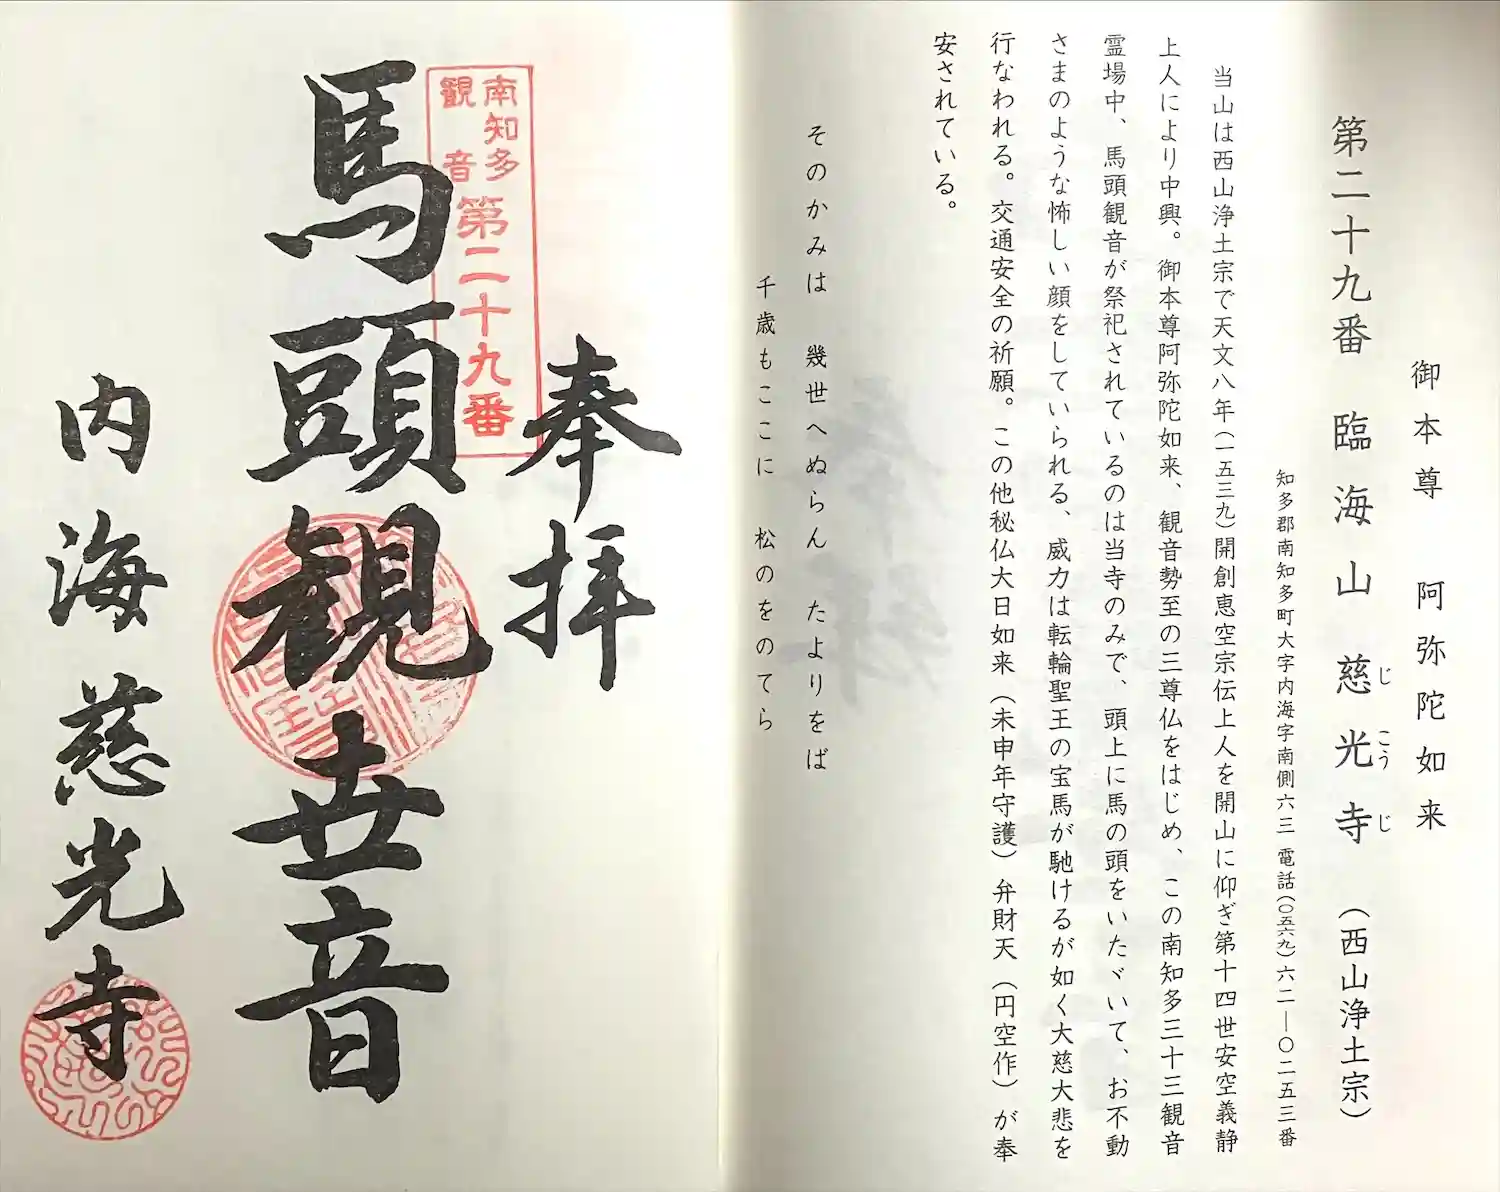 御本尊　阿弥陀如来
第二十九番　臨海山　慈光寺　（西山浄土宗）
じこうじ
知多郡南知多町大字内海字南側六三　電話（〇五六九）六二―〇二五三番
当山は西山浄土宗で天文八年（一五三九）開創恵空宗伝上人を開山に仰ぎ第十四世安空義静
上人により中興。御本尊阿弥陀如来、観音勢至の三尊仏をはじめ、この南知多三十三観音
霊場中、馬頭観音が祭祀されているのは当寺のみで、頭上に馬の頭をいたゞいて、お不動
さまのような怖しい顔をしていられる、威力は転輪聖王の宝馬が馳けるが如く大慈大悲を
行なわれる。交通安全の祈願。この他秘仏大日如来（未申年守護）弁財天（円空作）が奉
安されている。
そのかみは　幾世へぬらん　たよりをば
千歳もここに　松のをのてら
奉拝
南知多
観音
第二十九番
馬頭観世音
内海慈光寺